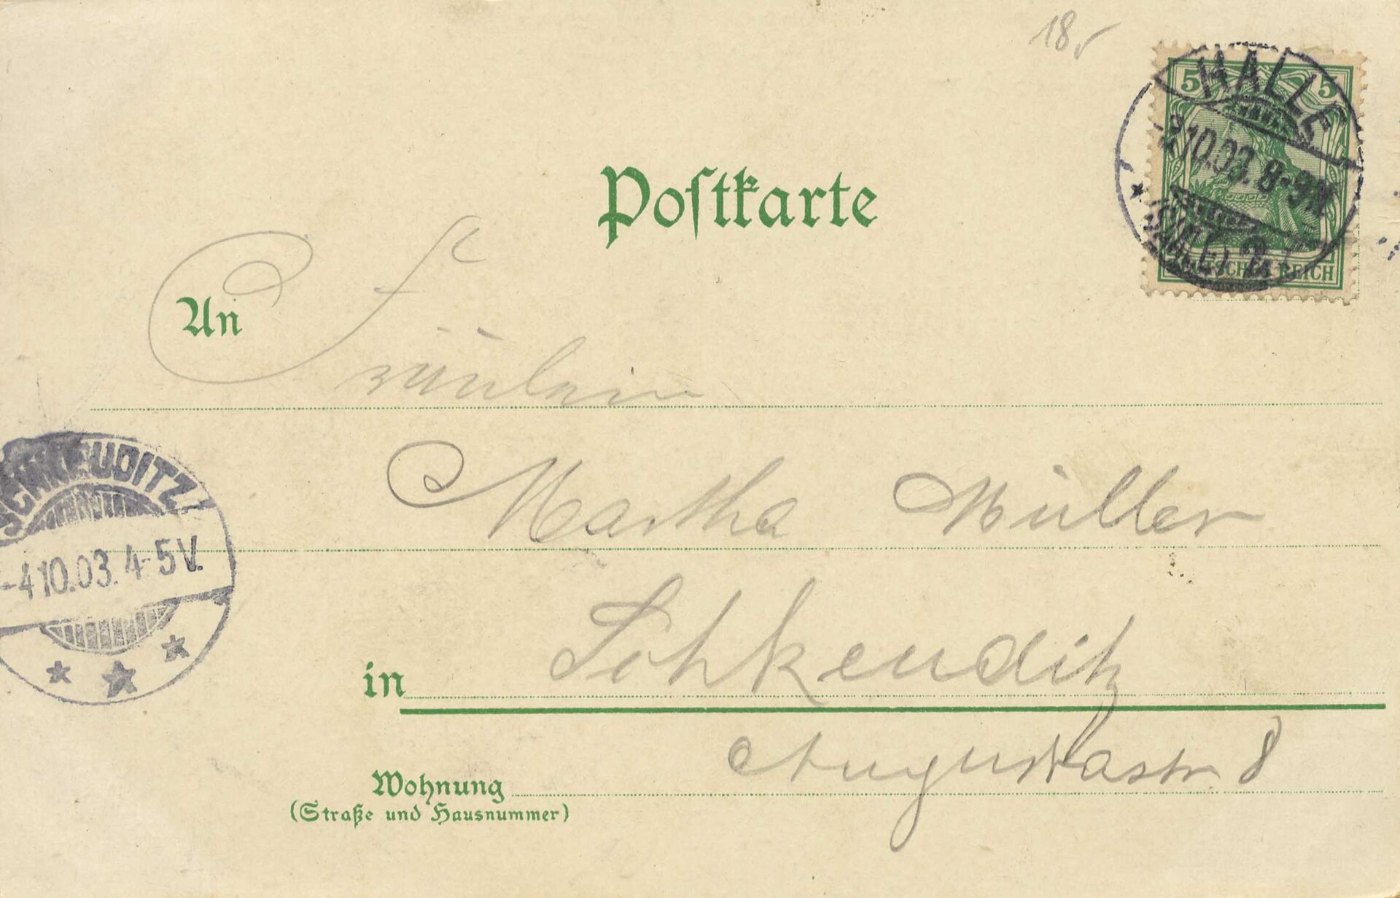 18.
5 5
HALLE
10.03. 8-9N
(SAALE) 2
DEUTSCHES REICH
Postkarte
An Fräulein
Martha Müller
SCHKEUDITZ
-4 10.03. 4-5V.
in Schkeuditz
Augustastr 8
Wohnung
(Straße und Hausnummer)